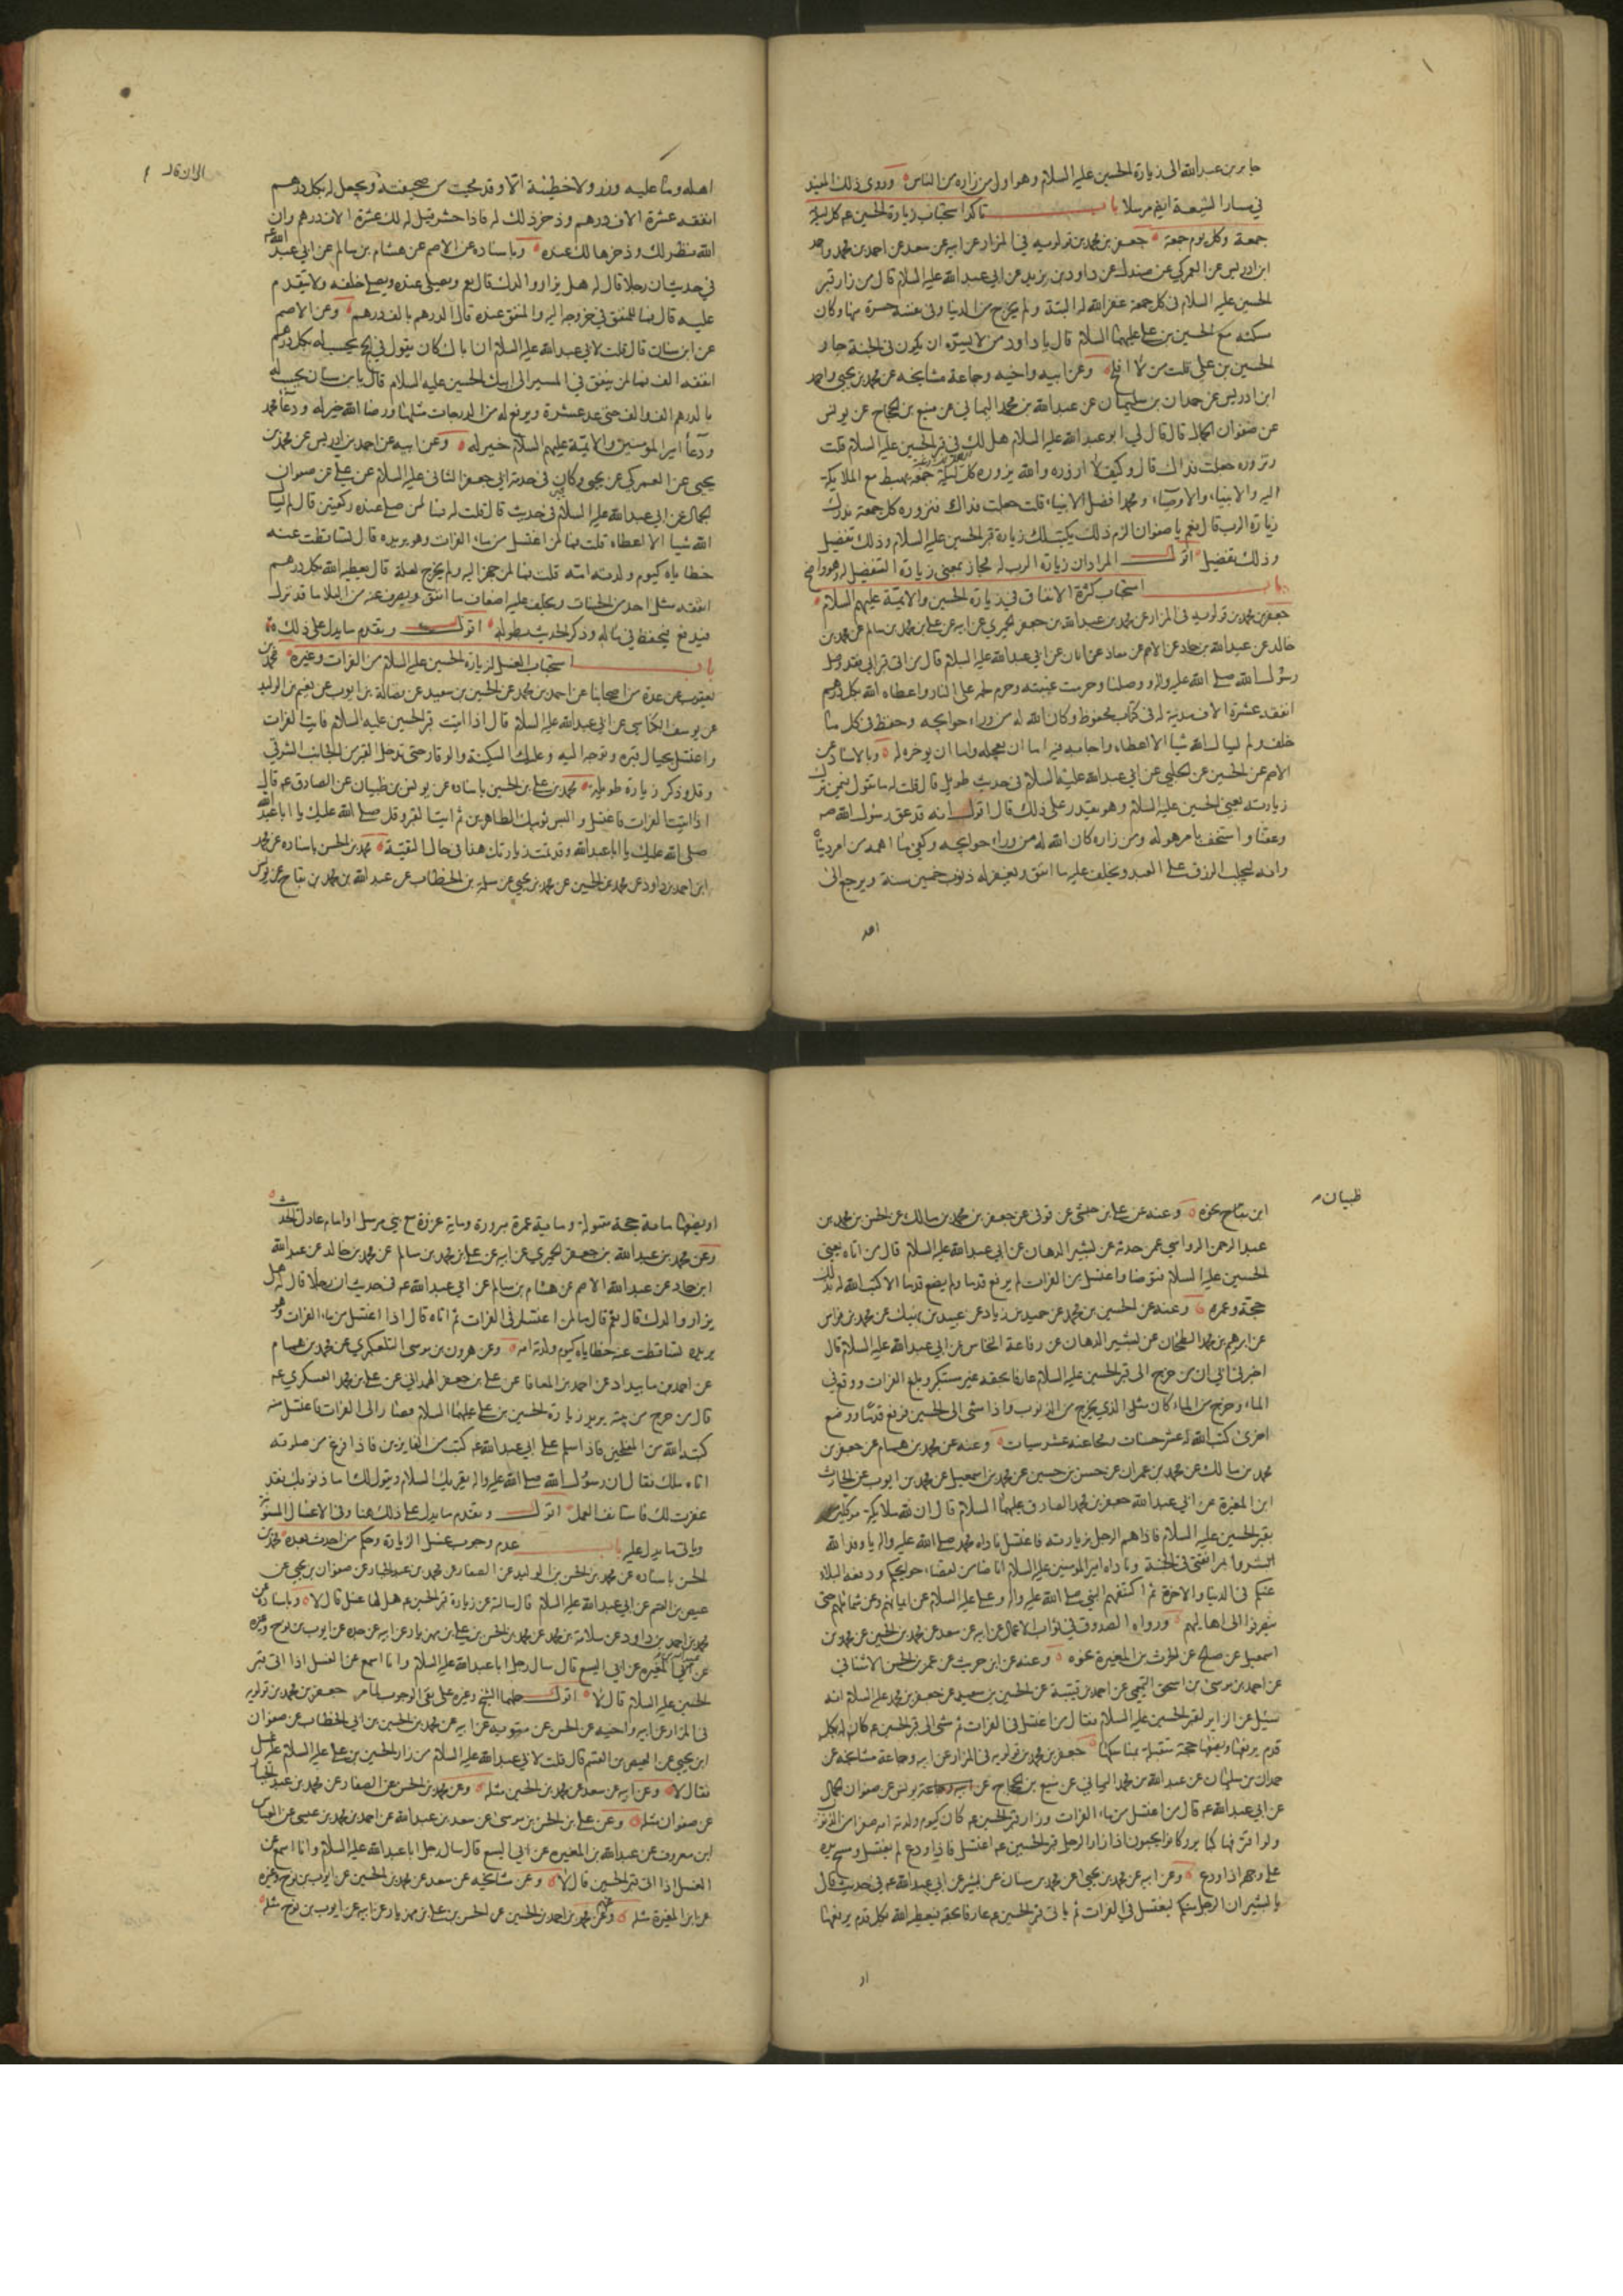 جابر بن عبد الله الى زيارة الحسين عليه السلام وهو اول من زاره من الناس وروى ذلك المفيد
في مسار الشيعة ايضا مرسلا باب تاكد استحباب زيارة الحسين ع كل ليلة
جمعة وكل يوم جمعة جعفر بن محمد بن قولويه في المزار عن ابيه عن سعد عن احمد بن محمد واحمد
ابن ادريس عن العمركي عن صندل عن داود بن يزيد عن ابي عبد الله عليه السلام قال من زار قبر
الحسين عليه السلام في كل جمعة غفر الله له البتة ولم يخرج من الدنيا وفي نفسه حسرة منها وكان
مسكنه مع الحسين بن علي عليهما السلام قال يا داود من لا يسره ان يكون في الجنة جار
الحسين بن علي قلت من لا افلح وعن ابيه واخيه وجماعة مشايخه عن محمد بن يحيى واحمد
ابن ادريس عن حمدان بن سليمان عن عبد الله بن محمد اليماني عن منيع بن الحجاج عن يونس
عن صفوان الجمال قال قال لي ابو عبد الله عليه السلام هل لك في قبر الحسين عليه السلام قلت
وتزوره جعلت فداك قال وكيف لا ازوره والله يزوره كل ليلة جمعة يهبط مع الملايكة
اليه والانبياء والاوصياء ومحمد افضل الانبياء قلت جعلت فداك فنزوره كل جمعة ندرك
زيارة الرب قال نعم يا صفوان الزم ذلك يكتب لك زيارة قبر الحسين عليه السلام وذلك تفضيل
وذلك تفضيل اقول المراد ان زيارة الرب له مجاز بمعنى زيادة التفضل له وهو واضح
باب استحباب كثرة الانفاق في زيارة الحسين والائمة عليهم السلام
جعفر بن محمد بن قولويه في المزار عن محمد بن عبد الله بن جعفر الحميري عن ابيه عن علي بن محمد بن سالم عن محمد بن
خالد عن عبد الله بن حماد عن الاصم عن معاذ عن ابان عن ابي عبد الله عليه السلام قال من اتى قبر ابي فقد وصل
رسول الله صلى الله عليه واله ووصلنا وحرمت غيبته وحرم لحمه على النار واعطاه الله بكل درهم
انفقه عشرة الاف مدينة له في كتاب محفوظ وكان الله له من وراء حوايجه وحفظ في كل ما
خلف ولم يسال الله شيا الا اعطاه واجابه فيه اما ان يعجله واما ان يوخره له وبالاسناد عن
الاصم عن الحسين عن الحلبي عن ابي عبد الله عليه السلام في حديث طويل قال قلت له ما تقول فيمن ترك
زيارته يعني الحسين عليه السلام وهو يقدر على ذلك قال اقول انه قد عق رسول الله ص
وعقنا واستخف بامر هو له ومن زاره كان الله له من وراء حوايجه وكفي ما اهمه من امر دنياه
وانه ليجلب الرزق على العبد ويخلف عليه ما انفق ويغفر له ذنوب خمسين سنة ويرجع الى
اهله
اهله وما عليه وزر ولا خطيئة الا وقد محيت من صحيفته ويجعل له بكل درهم
انفقه عشرة الاف درهم وذخر ذلك له فاذا حشر قيل له لك عشرة الاف درهم وان
الله نظر لك وذخرها لك عنده وباسناده عن الاصم عن هشام بن سالم عن ابي عبد الله ع
في حديث ان رجلا قال له هل يزار والدك قال نعم ويصلى عنده ويصلى خلفه ولا يتقدم
عليه قال فما للمنفق في خروجه اليه والمنفق عنده قال الدرهم بالف درهم وعن الاصم
عن ابن سنان قال قلت لابي عبد الله عليه السلام ان اباك كان يقول في الحج يحسب له بكل درهم
انفقه الف فما لمن ينفق في المسير الى ابيك الحسين عليه السلام قال يا بن سنان يحسب له
بالدرهم الف والف حتى عد عشرة ويرفع له من الدرجات مثلها ورضا الله خير له ودعاء محمد
ودعاء امير المومنين والائمة عليهم السلام خير له وعن ابيه عن احمد بن ادريس عن محمد بن
يحيى عن العمركي عن يحيى وكان في خدمة ابي جعفر الثاني عليه السلام عن علي عن صفوان
الجمال عن ابي عبد الله عليه السلام في حديث قال قلت له فما لمن صلى عنده ركعتين قال لم يسال
الله شيا الا اعطاه قلت فما لمن اغتسل من ماء الفرات وهو يريده قال تساقطت عنه
خطاياه كيوم ولدته امه قلت فما لمن جهز اليه ولم يخرج لعلة قال يعطيه الله بكل درهم
انفقه مثل احد من الحسنات ويخلف عليه اضعاف ما انفق ويصرف عنه من البلا ما قد نزل
فيدفع ويحفظ في ماله وذكر الحديث بطوله اقول وتقدم ما يدل على ذلك
باب استحباب الغسل لزيارة الحسين عليه السلام من الفرات وغيره محمد بن
يعقوب عن عدة من اصحابنا عن احمد بن محمد عن الحسين بن سعيد عن فضالة بن ايوب عن نعيم بن الوليد
عن يوسف الكناسي عن ابي عبد الله عليه السلام قال اذا اتيت قبر الحسين عليه السلام فايت الفرات
واغتسل بحيال قبره وتوجه اليه وعليك السكينة والوقار حتى تدخل القبر من الجانب الشرقي
وقل وذكر زيارة طويلة محمد بن علي بن الحسين باسناده عن يونس بن ظبيان عن الصادق ع قال
اذا اتيت الفرات فاغتسل والبس ثوبيك الطاهرين ثم ايت القبر وقل صلى الله عليك يا ابا عبد الله
صلى الله عليك يا ابا عبد الله وقد تمت زيارتك هذا في حال التقية محمد بن الحسن باسناده عن محمد
ابن احمد بن داود عن محمد بن الحسين عن محمد بن يحيى عن سلمة بن الخطاب عن عبد الله بن محمد بن نتاج عن يونس
ظبيان
ابن نتاج نحوه وعنه عن علي بن حبشي بن قوني عن جعفر بن محمد بن مالك عن الحسن بن محمد بن
عبد الرحمن الرواسي عمن حدثه عن بشير الدهان عن ابي عبد الله عليه السلام قال من اتاه يعني
الحسين عليه السلام فتوضا واغتسل من الفرات لم يرفع قدما ولم يضع قدما الا كتب الله له بذلك
حجة وعمرة وعنه عن الحسين بن محمد عن حميد بن زياد عن عبيد بن نهيك عن محمد بن فراس
عن ابرهيم بن محمد الطحان عن بشير الدهان عن رفاعة النخاس عن ابي عبد الله عليه السلام قال
اخبرني ابي ان من خرج الى قبر الحسين عليه السلام عارفا بحقه غير مستكبر وبلغ الفرات ووقع في
الماء وخرج من الماء كان مثل الذي يخرج من الذنوب واذا مشى الى الحسين فرفع قدما ووضع
اخرى كتب الله له عشر حسنات ومحا عنه عشر سيات وعنه عن محمد بن همام عن جعفر بن
محمد بن مالك عن محمد بن عمران عن حسن بن حسين عن محمد بن اسمعيل عن محمد بن ايوب عن الحارث
ابن المغيرة عن ابي عبد الله جعفر بن محمد الصادق عليهما السلام قال ان لله ملايكة موكلين
بقبر الحسين عليه السلام فاذا هم الرجل بزيارته فاغتسل ناداه محمد صلى الله عليه واله يا وفد الله
ابشروا بمرافقتي في الجنة وناداه امير المومنين عليه السلام انا ضامن لقضاء حوايجكم ودفع البلاء
عنكم في الدنيا والاخرة ثم اكتنفهم النبي صلى الله عليه واله وعلي عليه السلام عن ايمانهم وعن شمائلهم حتى
ينصرفوا الى اهاليهم ورواه الصدوق في ثواب الاعمال عن ابيه عن سعد عن محمد بن الحسين عن محمد بن
اسمعيل عن صلح عن الحرث بن المغيرة نحوه وعنه عن ابن حريث عن عمر بن الحسن الاشناني
عن احمد بن موسى بن اسحق التميمي عن احمد بن قتيبة عن الحسين بن سعيد عن جعفر بن محمد عليه السلام انه
سئل عن الزاير لقبر الحسين عليه السلام فقال من اغتسل في الفرات ثم مشى الى قبر الحسين ع كان له بكل
قدم يرفعها ويضعها حجة متقبلة بمناسكها جعفر بن محمد بن قولويه في المزار عن ابيه وجماعة مشايخه عن
حمدان بن سليمان عن عبد الله بن محمد اليماني عن منيع بن الحجاج عن يونس عن صفوان الجمال
عن ابي عبد الله ع قال من اغتسل من ماء الفرات وزار قبر الحسين ع كان كيوم ولدته امه صفرا من الذنوب
ولو اقترفها كباير وكانوا يحبون اذا زار الرجل قبر الحسين ع اغتسل فاذا ودع لم يغتسل ومسح يده
على وجهه اذا ودع وعن ابيه عن محمد بن يحيى عن محمد بن سنان عن بشير عن ابي عبد الله ع في حديث قال
يا بشير ان الرجل منكم ليغتسل في الفرات ثم ياتي قبر الحسين ع عارفا بحقه فيعطيه الله بكل قدم يرفعها
او
او يضعها ماية حجة مقبولة وماية عمرة مبرورة وماية غزوة مع نبي مرسل او امام عادل الحديث
وعن محمد بن عبد الله بن جعفر الحميري عن ابيه عن علي بن محمد بن سالم عن محمد بن خالد عن عبد الله
ابن حماد عن عبد الله الاصم عن هشام بن سالم عن ابي عبد الله ع في حديث ان رجلا قال له هل
يزار والدك قال نعم قال فما لمن اغتسل في الفرات ثم اتاه قال اذا اغتسل من ماء الفرات وهو
يريده تساقطت عنه خطاياه كيوم ولدته امه وعن هرون بن موسى التلعكبري عن محمد بن همام
عن احمد بن مابنداد عن احمد بن المعافا عن علي بن جعفر الهمداني عن علي بن محمد العسكري ع
قال من خرج من بيته يريد زيارة الحسين بن علي عليهما السلام فصار الى الفرات فاغتسل منه
كتبه الله من المفلحين فاذا سلم على ابي عبد الله ع كتب من الفايزين فاذا فرغ من صلوته
اتاه ملك فقال ان رسول الله صلى الله عليه واله يقريك السلام ويقول لك اما ذنوبك فقد
غفرت لك فاستانف العمل اقول وتقدم ما يدل على ذلك هنا وفي الاغسال المسنونة
وياتي ما يدل عليه باب عدم وجوب غسل الزيارة وحكم من احدث بعده محمد بن
الحسن باسناده عن محمد بن الحسن بن الوليد عن الصفار عن محمد بن عبد الجبار عن صفوان بن يحيى عن
عيص بن القسم عن ابي عبد الله عليه السلام قال سالته عن زيارة قبر الحسين ع هل لها غسل قال لا وباسناده عن
محمد بن احمد بن داود عن سلامة بن محمد عن محمد بن الحسن بن علي بن مهزيار عن ابيه عن جده عن ايوب بن نوح وغيره
عن عبد الله بن المغيرة عن ابي اليسع قال سال رجل ابا عبد الله عليه السلام وانا اسمع عن الغسل اذا اتى قبر
الحسين عليه السلام قال لا اقول حملها الشيخ وغيره على نفي الوجوب لما مر جعفر بن محمد بن قولويه
في المزار عن ابيه واخيه عن الحسن بن متويه عن ابيه عن محمد بن الحسين بن ابي الخطاب عن صفوان
ابن يحيى عن العيص بن القسم قال قلت لابي عبد الله عليه السلام من زار الحسين بن علي عليه السلام عليه غسل
فقال لا وعن ابيه عن سعد عن محمد بن الحسين مثله وعن محمد بن الحسن عن الصفار عن محمد بن عبد الجبار
عن صفوان مثله وعن علي بن الحسن بن موسى عن سعد بن عبد الله عن احمد بن محمد بن عيسى عن العباس
ابن معروف عن عبد الله بن المغيرة عن ابي اليسع قال سال رجل ابا عبد الله عليه السلام وانا اسمع عن
الغسل اذا اتى قبر الحسين قال لا وعن مشايخه عن سعد عن محمد بن الحسين عن ايوب بن نوح وغيره
عن ابن المغيرة مثله وعن محمد بن احمد بن الحسين عن الحسن بن علي بن مهزيار عن ابيه عن ايوب بن نوح مثله